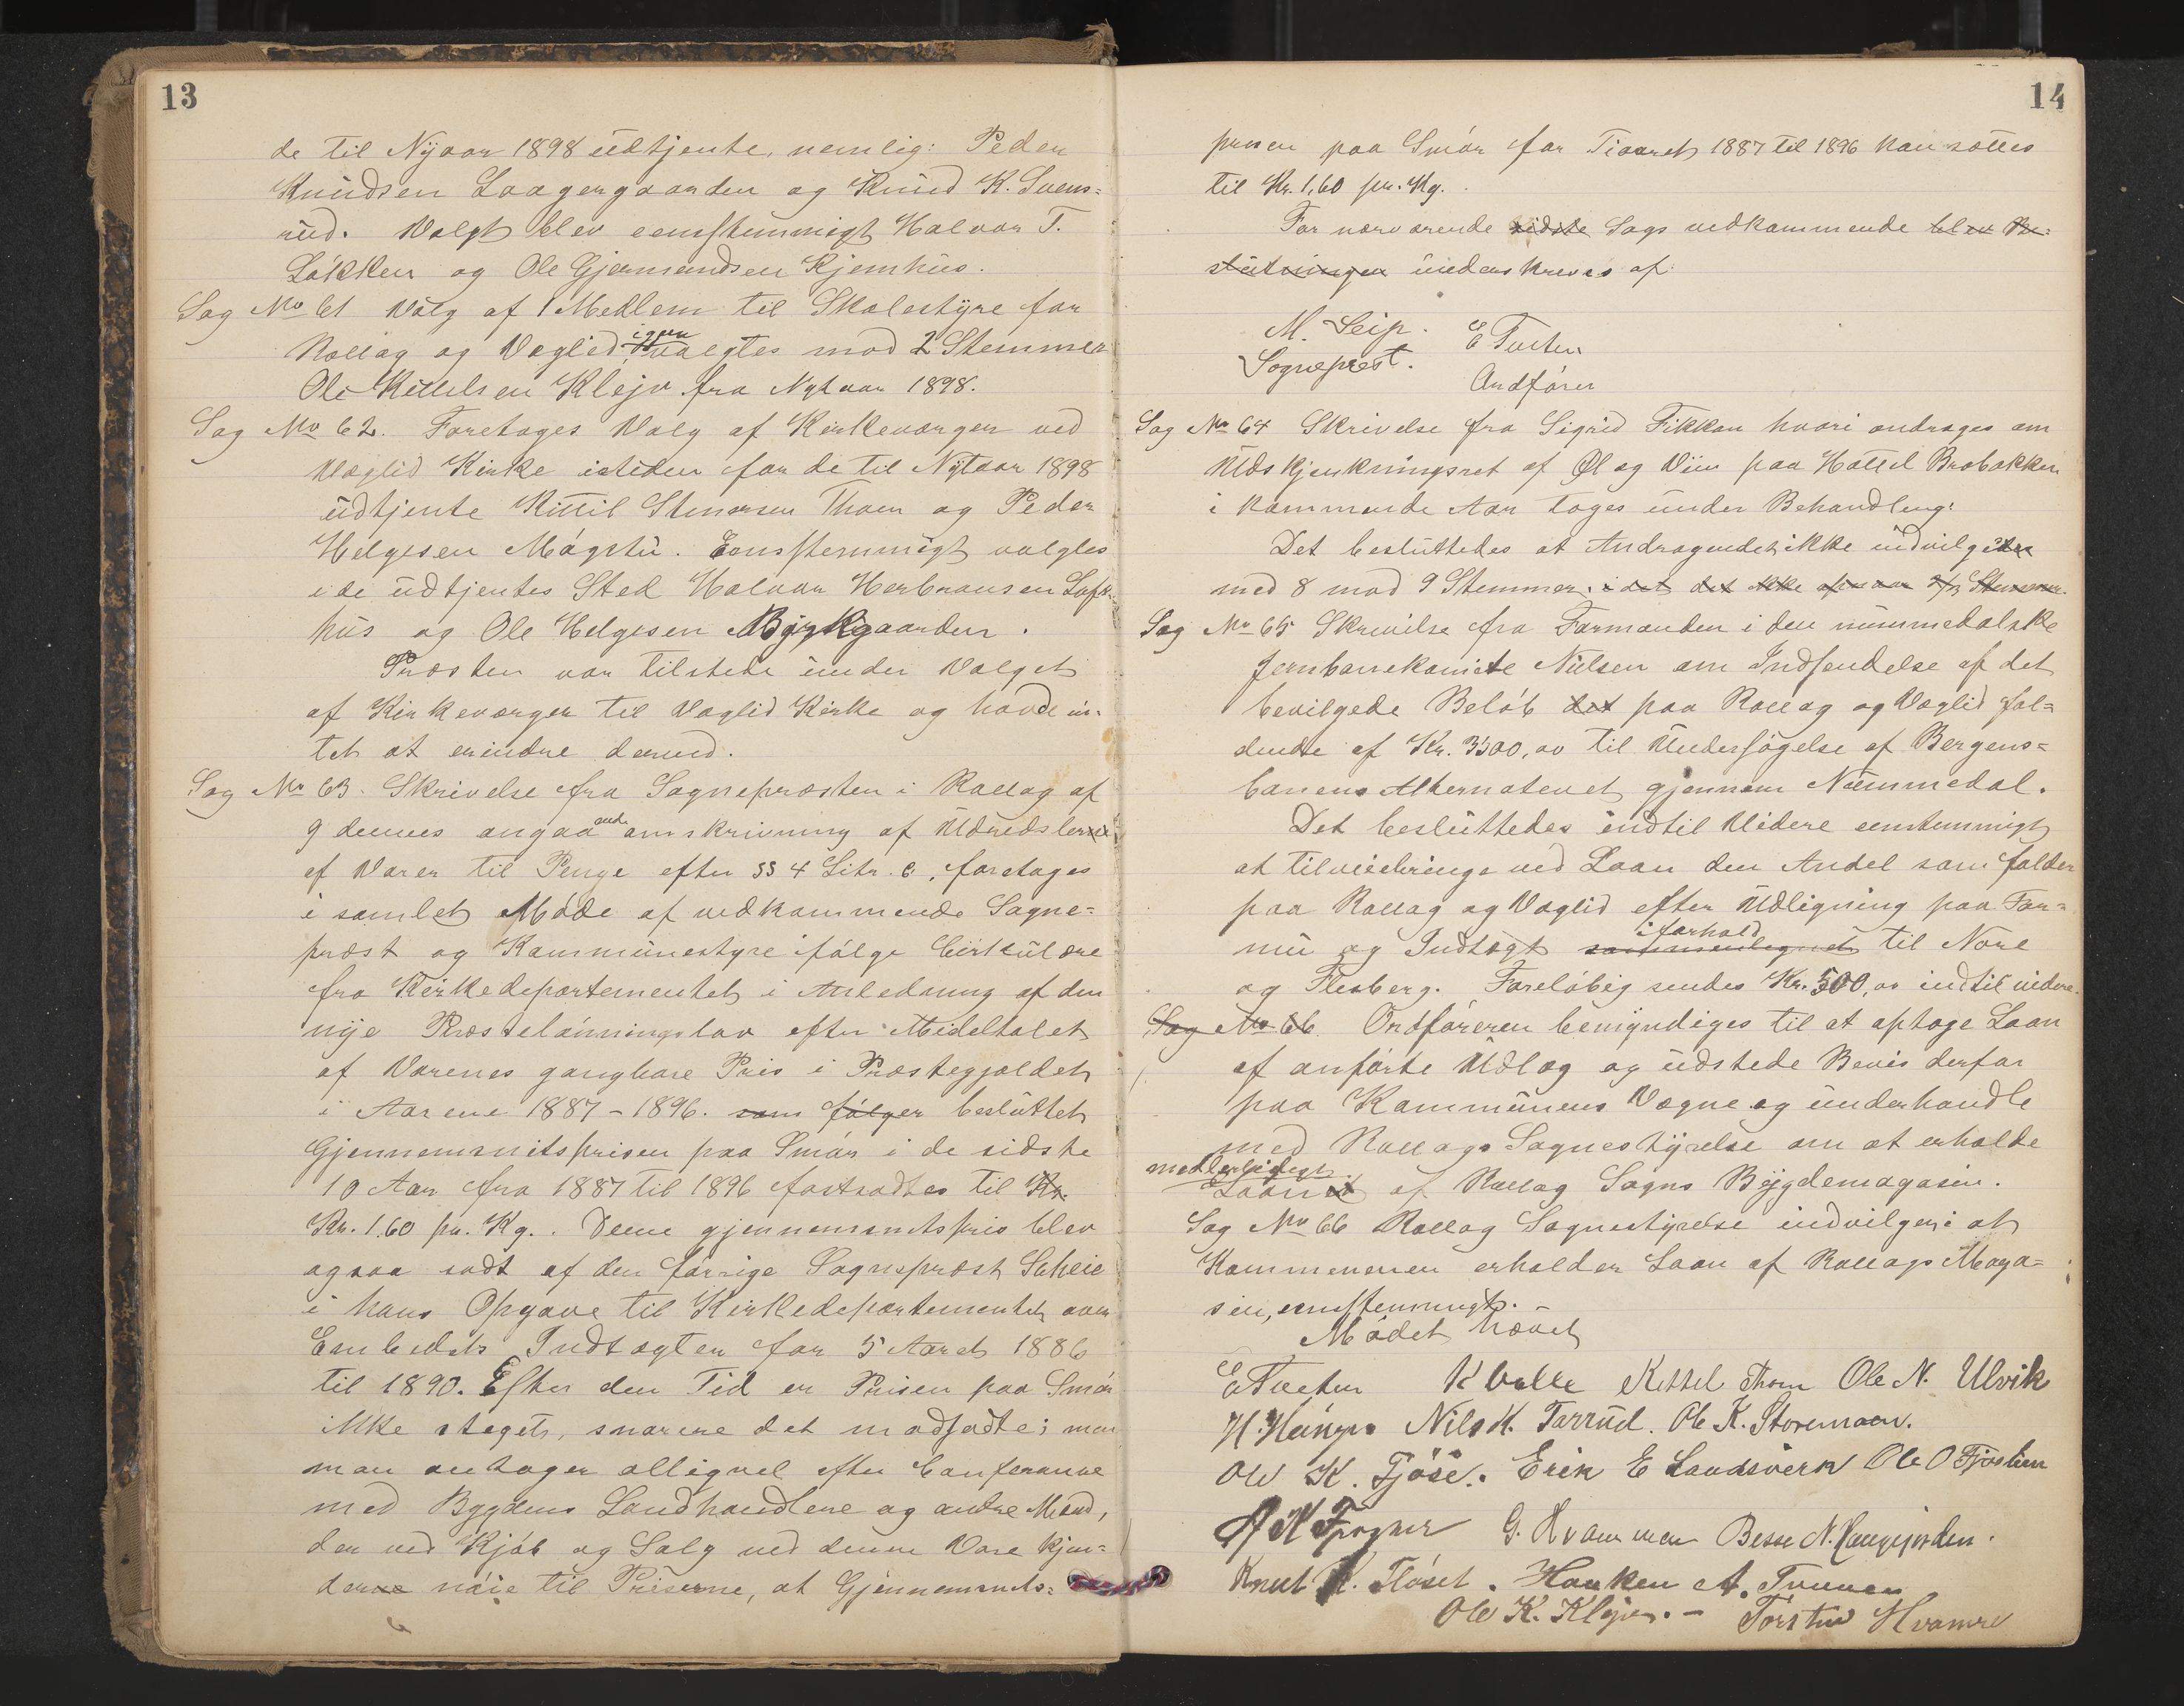 13
de til Nyaar 1898 udtjente, nemlig: Peder
Knudsen Laagergaarden og Knud K. Svens=
rud. Valgt blev eenstemmigt Halvor T.
Løkken og Ole Gjermundsen Kjemhus.
Sag No 61 Valg af 1 Medlem til Skolestyre for
Rollag og Væglid igjen valgtes mod 2 Stemmer
Ole Kittelsen Klejv fra Nytaar 1898.
Sag No 62. Foretages Valg af Kirkeværger ved
Væglid Kirke isteden for de til Nytaar 1898
udtjente Kittil Stenersen Thoen og Peder
Helgesen Møgstu. Eensstemmigt valgtes
i de udtjentes Sted Halvor Herbransen
hus og Ole Helgesen Byrkgaarden.
Præsten var tilstede under Valget
af Kirkeværger til Væglid Kirke og havde in-
tet at erindre derved.
Sag No 63. Skrivelse fra Sognepræsten i Rollag af
9 dennes angaaende omskrivning af Udredsler
af Varer til Penge efter §§ 4 Litr. c, foretages
i samlet Møde af vedkommende Sogne=
præst og Kommunestyre ifølge Cirkulære
fra Kirkedepartementet i Anledning af den
nye Præstelønningslov efter Middeltalet
af Varenes gangbare Pris i Præstegjældet
i Aarene 1887-1896. som følger besluttet
Gjennemsnitsprisen paa Smør i de sidste
10 Aar fra 1887 til 1896 fastsadtes til Kr.
Kr. 1.60 pr. Kg. . Denne gjennemsnitspris blev
ogsaa sadt af den forrige Sognepræst Scheie
i hans Opgave til Kirkedepartementet over
Embedets Indtægter for 5 Aaret 1886
til 1890. Efter den Tid er Prisen paa Smør
ikke steget, snarere det modsadte; men
man antager alligevel efter Conferanse
med Bygdens Landhandlere og andre Mænd,
der ved Kjøb og Salg ved denne Vare kjen=
der nøie til Priserne, at Gjennemsnits=
14
prisen paa Smør for Tiaaret 1887 til 1896 kan sættes
til Kr. 1.60 pr. Kg.
For nærværende sidste Sags vedkommende blev Be=
slutningen underskreves af:
M. Seip. E Tveten
Sogneprest. Ordfører
Sag No 64 Skrivelse fra Sigrid Fikkan hvori andrages om
Udskjenkningsret af Øl og Viin paa Hottel Brobakken
i kommende Aar tages under Behandling:
Det besluttedes at Andragendet ikke indvilges
med 8 mod 9 Stemmer. idet det ikke
Sag No 65 Skrivelse fra Formanden i den nummedalske
Jernbanekomite Nielsen om Indsendelse af det
bevilgede Beløb det paa Rollag og Væglid fal=
dende af Kr. 3500,00 til Undersøgelse af Bergens=
banens Alternativet gjennem Nummedal.
Det besluttedes indtil Videre eenstemmigt
at tilveiebringe ved Laan den Andel som falder
paa Rollag og Væglid efter Udligning paa For=
mu og Indtægt sammenlignet i forhold til Nore
og Flesberg. Foreløbig sendes Kr. 500,00 indtil videre.
Sag No 66 Ordføreren bemyndiges til at optage Laan
af anførte Udlæg og udstede Bevis derfor
paa Kommunens Vegne og underhandle
med Rollags Sognestyrelse om at erholde
midlertidigt
Laan af Rollag Sogns Bygdemagasin.
Sag No 66 Rollag Sognestyrelse indvilger i at
Kommunen erholder Laan af Rollags Maga=
sin, eenstemmigt. -
Mødet hævet
E Tveten K Kittel Thoen Ole N. Ulvik
Nils K. Tarrud. Ole K. Storemoen.
Ole K. Fjøse. Erik E Landsverk Ole O Fjøslien
G. Hvammen Besse N.
Knut K. Fløset. Haaken A.
Ole K. Klejv. - Torstein Hvamre